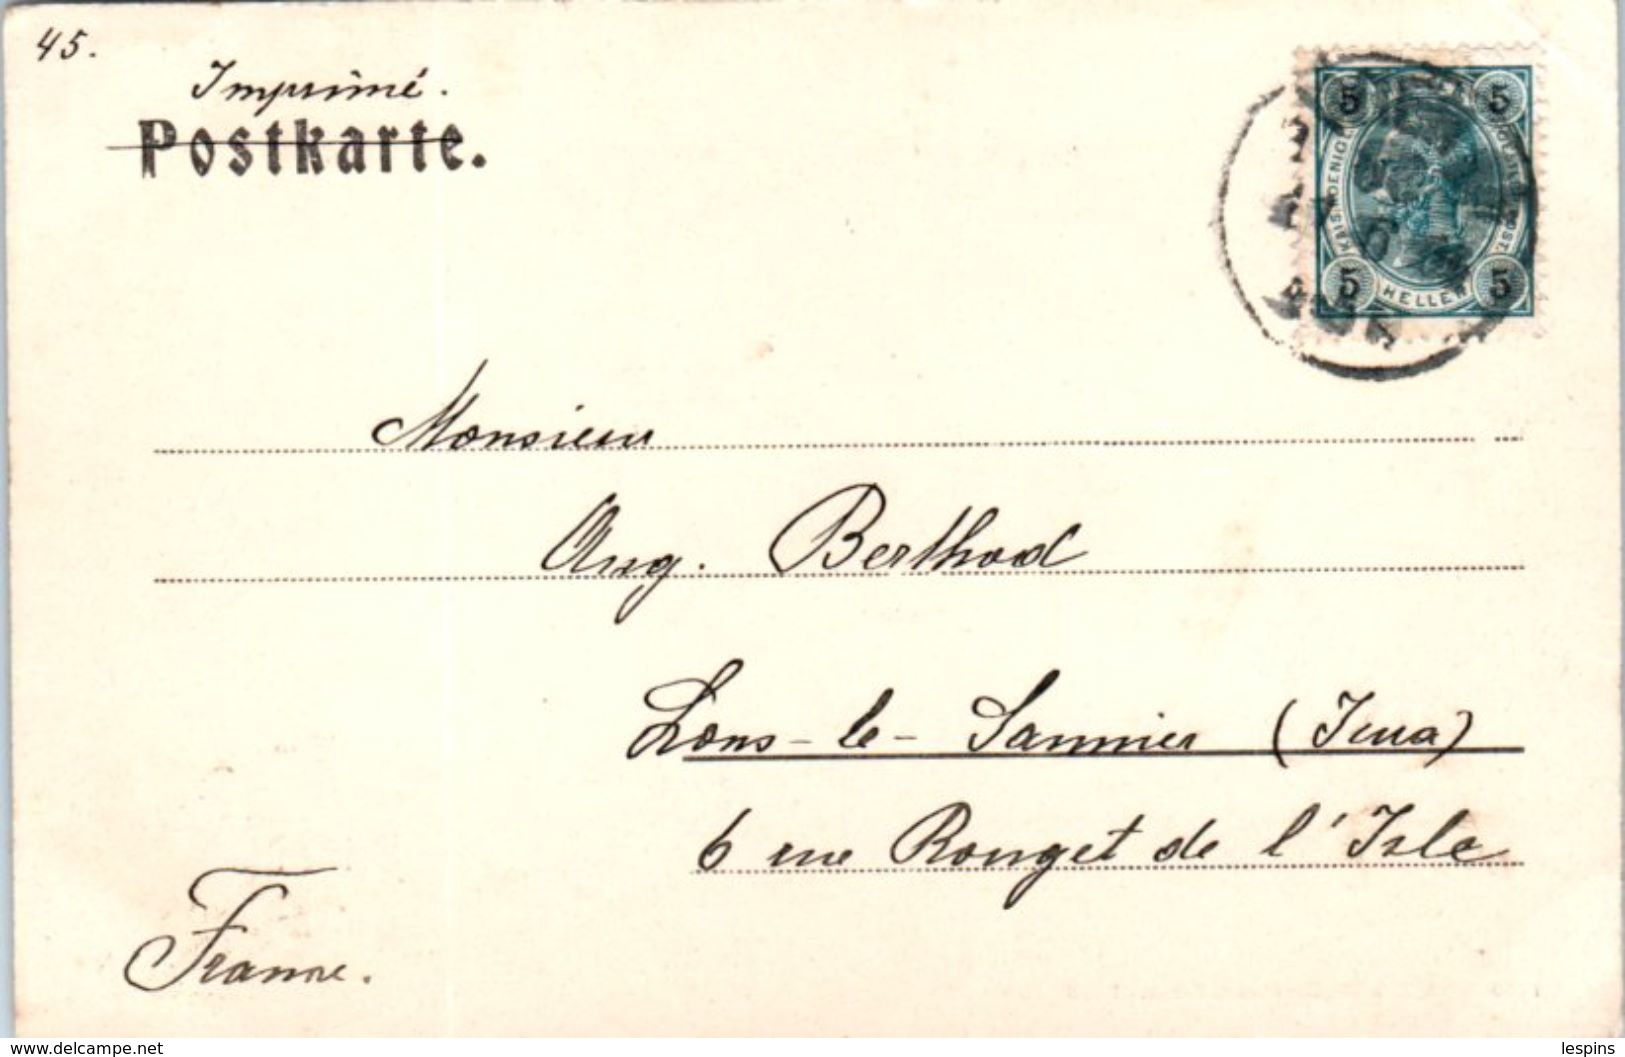 45.
Imprimé.
Postkarte.
5 5
5 5
HELLER
Monsieur
Aug. Berthod
Lons-le-Saunier (Jura)
6 rue Rouget de l'Isle
France.
delcampe.net
lespins